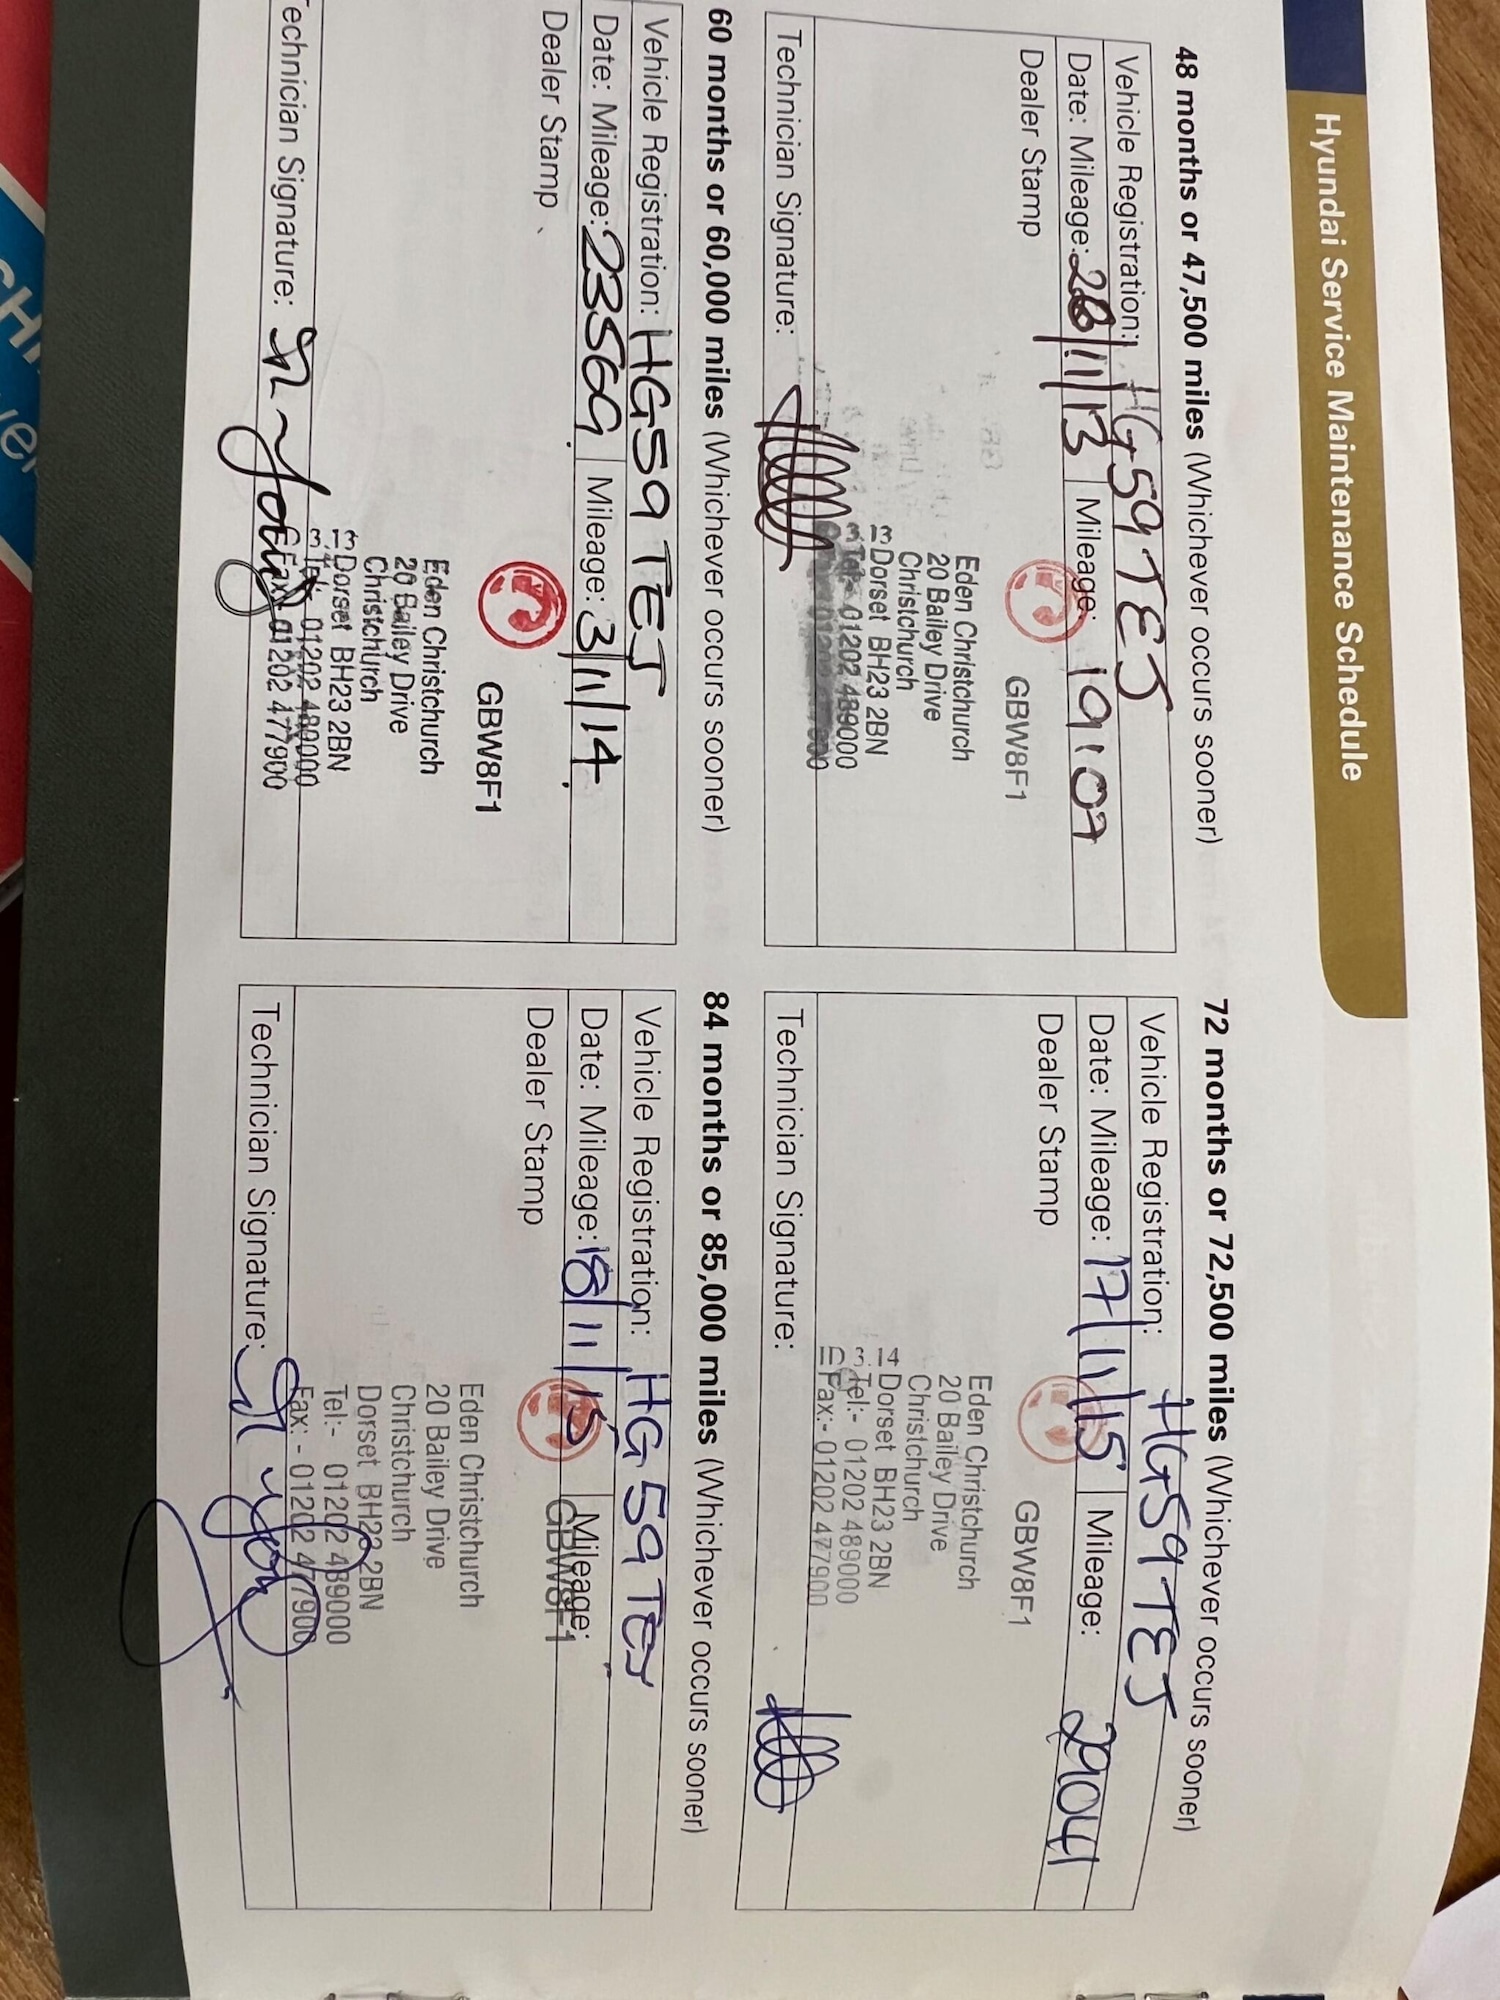 Hyundai Service Maintenance Schedule
48 months or 47,500 miles (Whichever occurs sooner)
Vehicle Registration: HG59 TEJ
Date: Mileage: 28/11/13 Mileage: 19107
Dealer Stamp
GBW8F1
Eden Christchurch
20 Bailey Drive
Christchurch
Dorset BH23 2BN
Tel:- 01202 489000
Technician Signature:
60 months or 60,000 miles (Whichever occurs sooner)
Vehicle Registration: HG59 TEJ
Date: Mileage: 23569 Mileage: 3/11/14
Dealer Stamp
GBW8F1
Eden Christchurch
20 Bailey Drive
Christchurch
Dorset BH23 2BN
Tel:- 01202 489000
Fax:- 01202 477900
Technician Signature:
72 months or 72,500 miles (Whichever occurs sooner)
Vehicle Registration: HG59 TEJ
Date: Mileage: 17/11/15 Mileage: 29041
Dealer Stamp
GBW8F1
Eden Christchurch
20 Bailey Drive
Christchurch
Dorset BH23 2BN
Tel:- 01202 489000
Fax:- 01202 477900
Technician Signature:
84 months or 85,000 miles (Whichever occurs sooner)
Vehicle Registration: HG59 TEJ
Date: Mileage: 18/11/15 Mileage:
Dealer Stamp
GBW8F1
Eden Christchurch
20 Bailey Drive
Christchurch
Dorset BH23 2BN
Tel:- 01202 489000
Fax:- 01202 477900
Technician Signature: